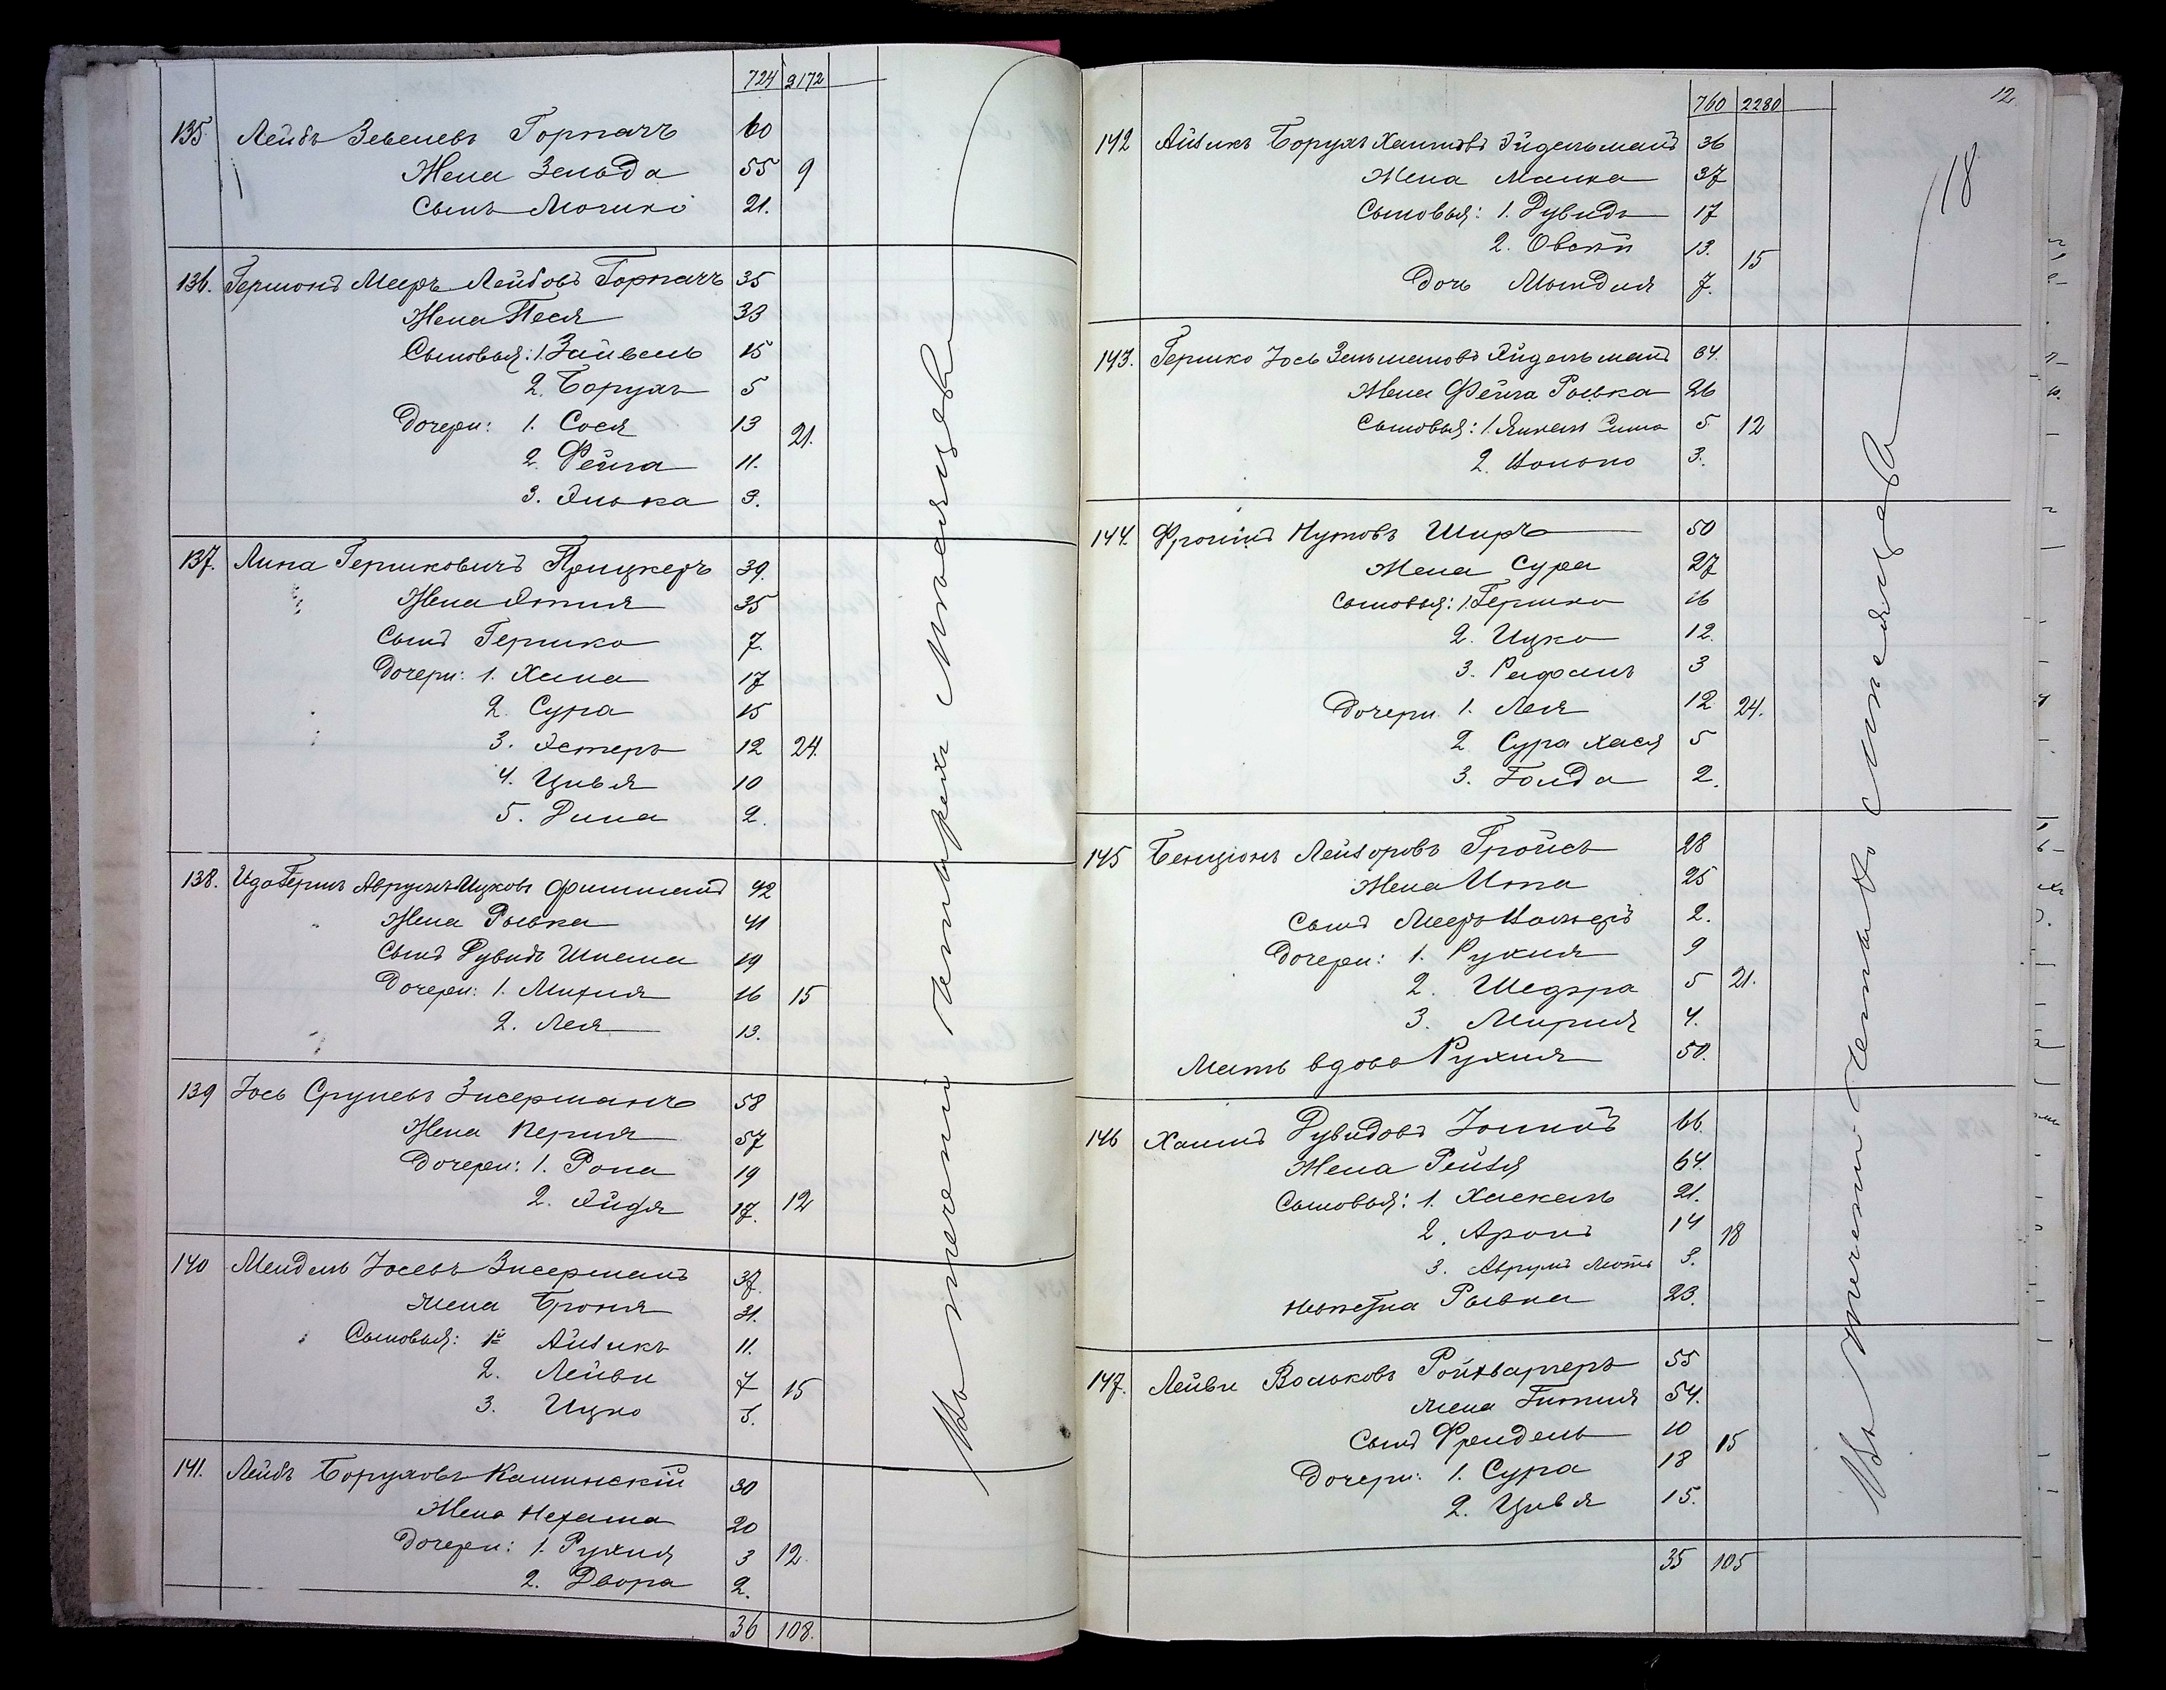 724 2172
135. Лейбъ Зевелевъ Горпачъ 60
Жена Зельда 55 9
Сынъ Мошко 21.
136. Гершонъ Мееръ Лейбовъ Горпачъ 35
Жена Песя 33
Сыновья: 1. Зайвель 15
2. Борухъ 5
Дочери: 1. Сося 13 21.
2. Фейга 11.
3. Элька 3.
137. Липа Гершковичъ Прицкеръ 39.
Жена Этля 35
Сынъ Гершко 7.
Дочери: 1. Хана 17
2. Сура 15
3. Эстеръ 12 24
4. Цивья 10
5. Дина 2.
138. Авруъ Ицковъ Фишманъ 42
Жена Рывка 41
Сынъ Дувидъ Шлема 19
Дочери: 1. 16 15
2. Лея 13.
139 Іось Срулевъ Зисерманъ 58
Жена Перля 57
Дочери: 1. 19
2. Эйдя 17. 12
140 Мендель Іосевъ Зисерманъ 37.
Жена Броня 31.
Сыновья: 1й Айзикъ 11.
2. Лейви 7 15
3. Ицко 5.
141. Лейбъ Боруховъ Кашинскій 30
Жена Нехама 20
Дочери: 1. Рухля 3 12.
2. Двора 2.
36 108.
Въ теченіи четырехъ мѣсяцевъ
12.
18
760 2280
142 Айзикъ Борухъ Хаимовъ Эйдельманъ 36
Жена Малка 37
Сыновья: 1. Дувидъ 17
2. Овсѣй 13. 15
Дочь Мындля 7.
143. Гершко Іось Зельмановъ Эйдельманъ 34.
Жена Фейга Рывка 26
Сыновья: 1. Янкель Симха 5 12
2. Волько 3.
144. Фроимъ Нутовъ Ширъ 50
Жена Сура 27
Сыновья: 1. Гершко 16
2. Ицко 12.
3. Рафаилъ 3
Дочери 1. Лея 12 24.
2 Сура Хася 5
3. Голда 2.
145 Бенціонъ Лейзоровъ Гройсъ 28
Жена Ита 25
Сынъ Мееръ 2.
Дочери: 1. Рухля 9
2. 5 21.
3. Мирля 4.
Мать вдова Рухля 50.
146 Хаимъ Дувидовъ 66.
Жена Рейзя 64.
Сыновья: 1. Хаскель 21.
2. Аронъ 14 18
3. Аврумъ Мотъ 3.
Невѣстка Рывка 23.
147. Лейви Вольковъ Ройтваргеръ 55
Жена Гитля 54.
Сынъ Фрейдель 10 15
Дочери: 1. Сура 18
2. Цивья 15.
35 105
Въ теченіи четырехъ мѣсяцевъ